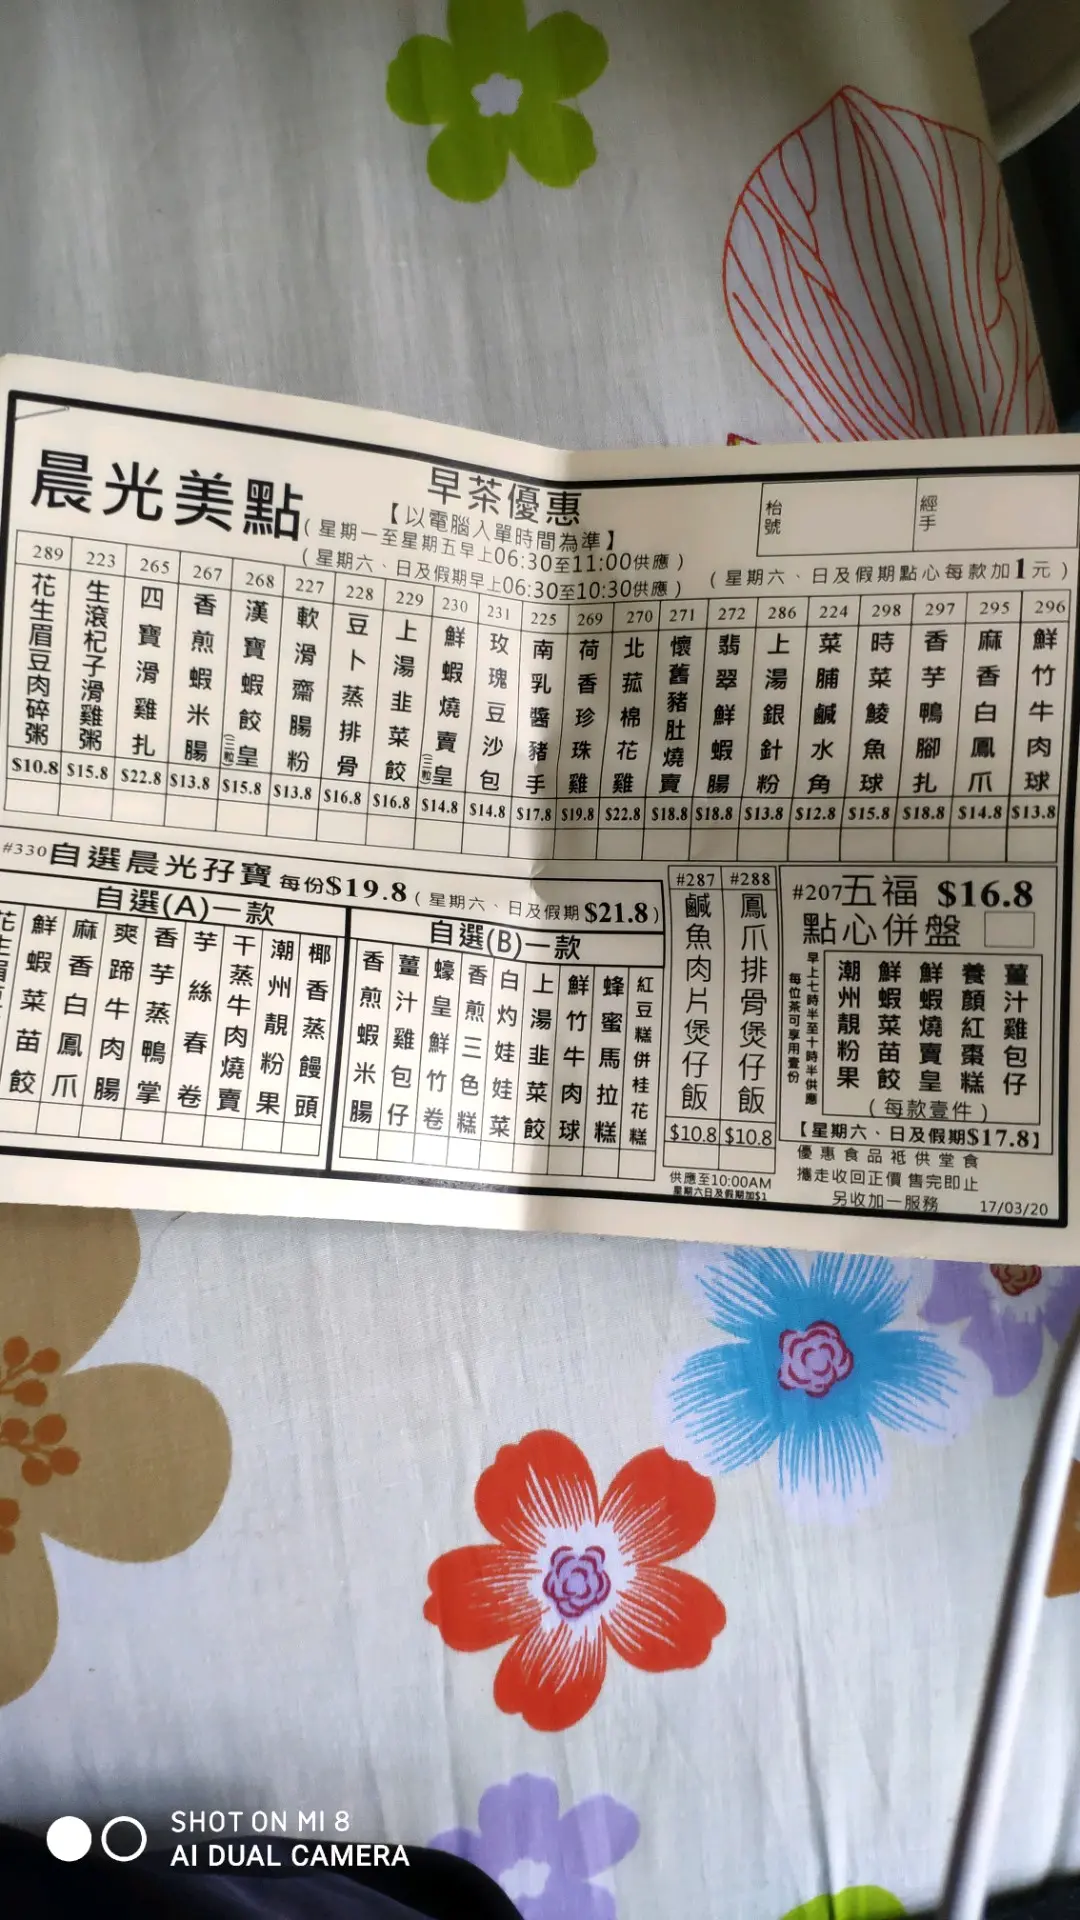 晨光美點
早茶優惠
【以電腦入單時間為準】
(星期一至星期五早上06:30至11:00供應)
(星期六、日及假期早上06:30至10:30供應)
枱號
經手
(星期六、日及假期點心每款加1元)
289 花生眉豆肉碎粥 $10.8
223 生滾杞子滑雞粥 $15.8
265 四寶滑雞扎 $22.8
267 香煎蝦米腸 $13.8
268 漢寶蝦餃皇(三粒) $15.8
227 軟滑齋腸粉 $13.8
228 豆卜蒸排骨 $16.8
229 上湯韭菜餃 $16.8
230 鮮蝦燒賣皇(三粒) $14.8
231 玫瑰豆沙包 $14.8
225 南乳醬豬手 $17.8
269 荷香珍珠雞 $19.8
270 北菰棉花雞 $22.8
271 懷舊豬肚燒賣 $18.8
272 翡翠鮮蝦腸 $18.8
286 上湯銀針粉 $13.8
224 菜脯鹹水角 $12.8
298 時菜鯪魚球 $15.8
297 香芋鴨腳扎 $18.8
295 麻香白鳳爪 $14.8
296 鮮竹牛肉球 $13.8
#330自選晨光孖寶 每份$19.8(星期六、日及假期$21.8)
自選(A)一款
花生眉豆
鮮蝦菜苗餃
麻香白鳳爪
爽蹄牛肉腸
香芋蒸鴨掌
芋絲春卷
干蒸牛肉燒賣
潮州靚粉果
椰香蒸饅頭
自選(B)一款
香煎蝦米腸
薑汁雞包仔
蠔皇鮮竹卷
香煎三色糕
白灼娃娃菜
上湯韭菜餃
鮮竹牛肉球
蜂蜜馬拉糕
紅豆糕併桂花糕
#287 鹹魚肉片煲仔飯 $10.8
#288 鳳爪排骨煲仔飯 $10.8
供應至10:00AM
星期六日及假期加$1
#207五福 $16.8
點心併盤
早上七時半至十時半供應
每位茶可享用壹份
潮州靚粉果
鮮蝦菜苗餃
鮮蝦燒賣皇
養顏紅棗糕
薑汁雞包仔
(每款壹件)
【星期六、日及假期$17.8】
優惠食品祗供堂食
攜走收回正價 售完即止
另收加一服務
17/03/20
SHOT ON MI 8
AI DUAL CAMERA